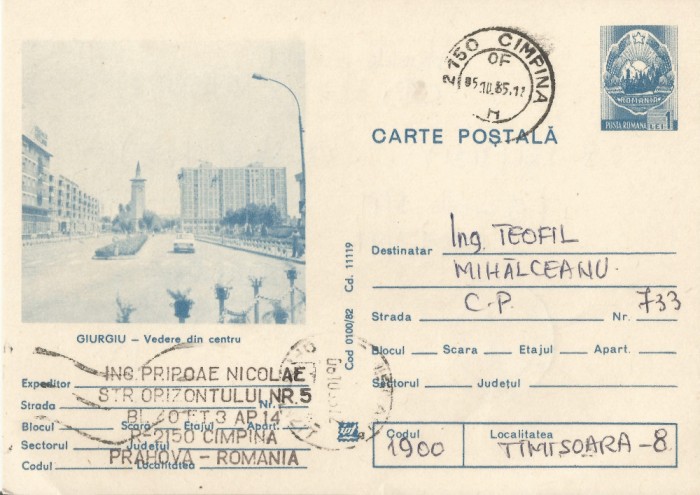 2150 CIMPINA
OF
05.10.85.17
H
ROMANIA
POSTA ROMANA LEI 1
CARTE POȘTALĂ
GIURGIU – Vedere din centru
Cod 0100/82 Cd. 11119
Destinatar Ing. TEOFIL
MIHĂLCEANU
C.P. 733
Strada Nr.
Blocul Scara Etajul Apart.
Sectorul Județul
Codul Localitatea
1900 TIMISOARA-8
Expeditor ING. PRIPOAE NICOLAE
STR. ORIZONTULUI NR. 5
Strada Nr.
ET 3 AP. 14
Blocul Scară Etajul Apart.
R-2150 CIMPINA
Sectorul Județul
PRAHOVA - ROMANIA
Codul Localitatea